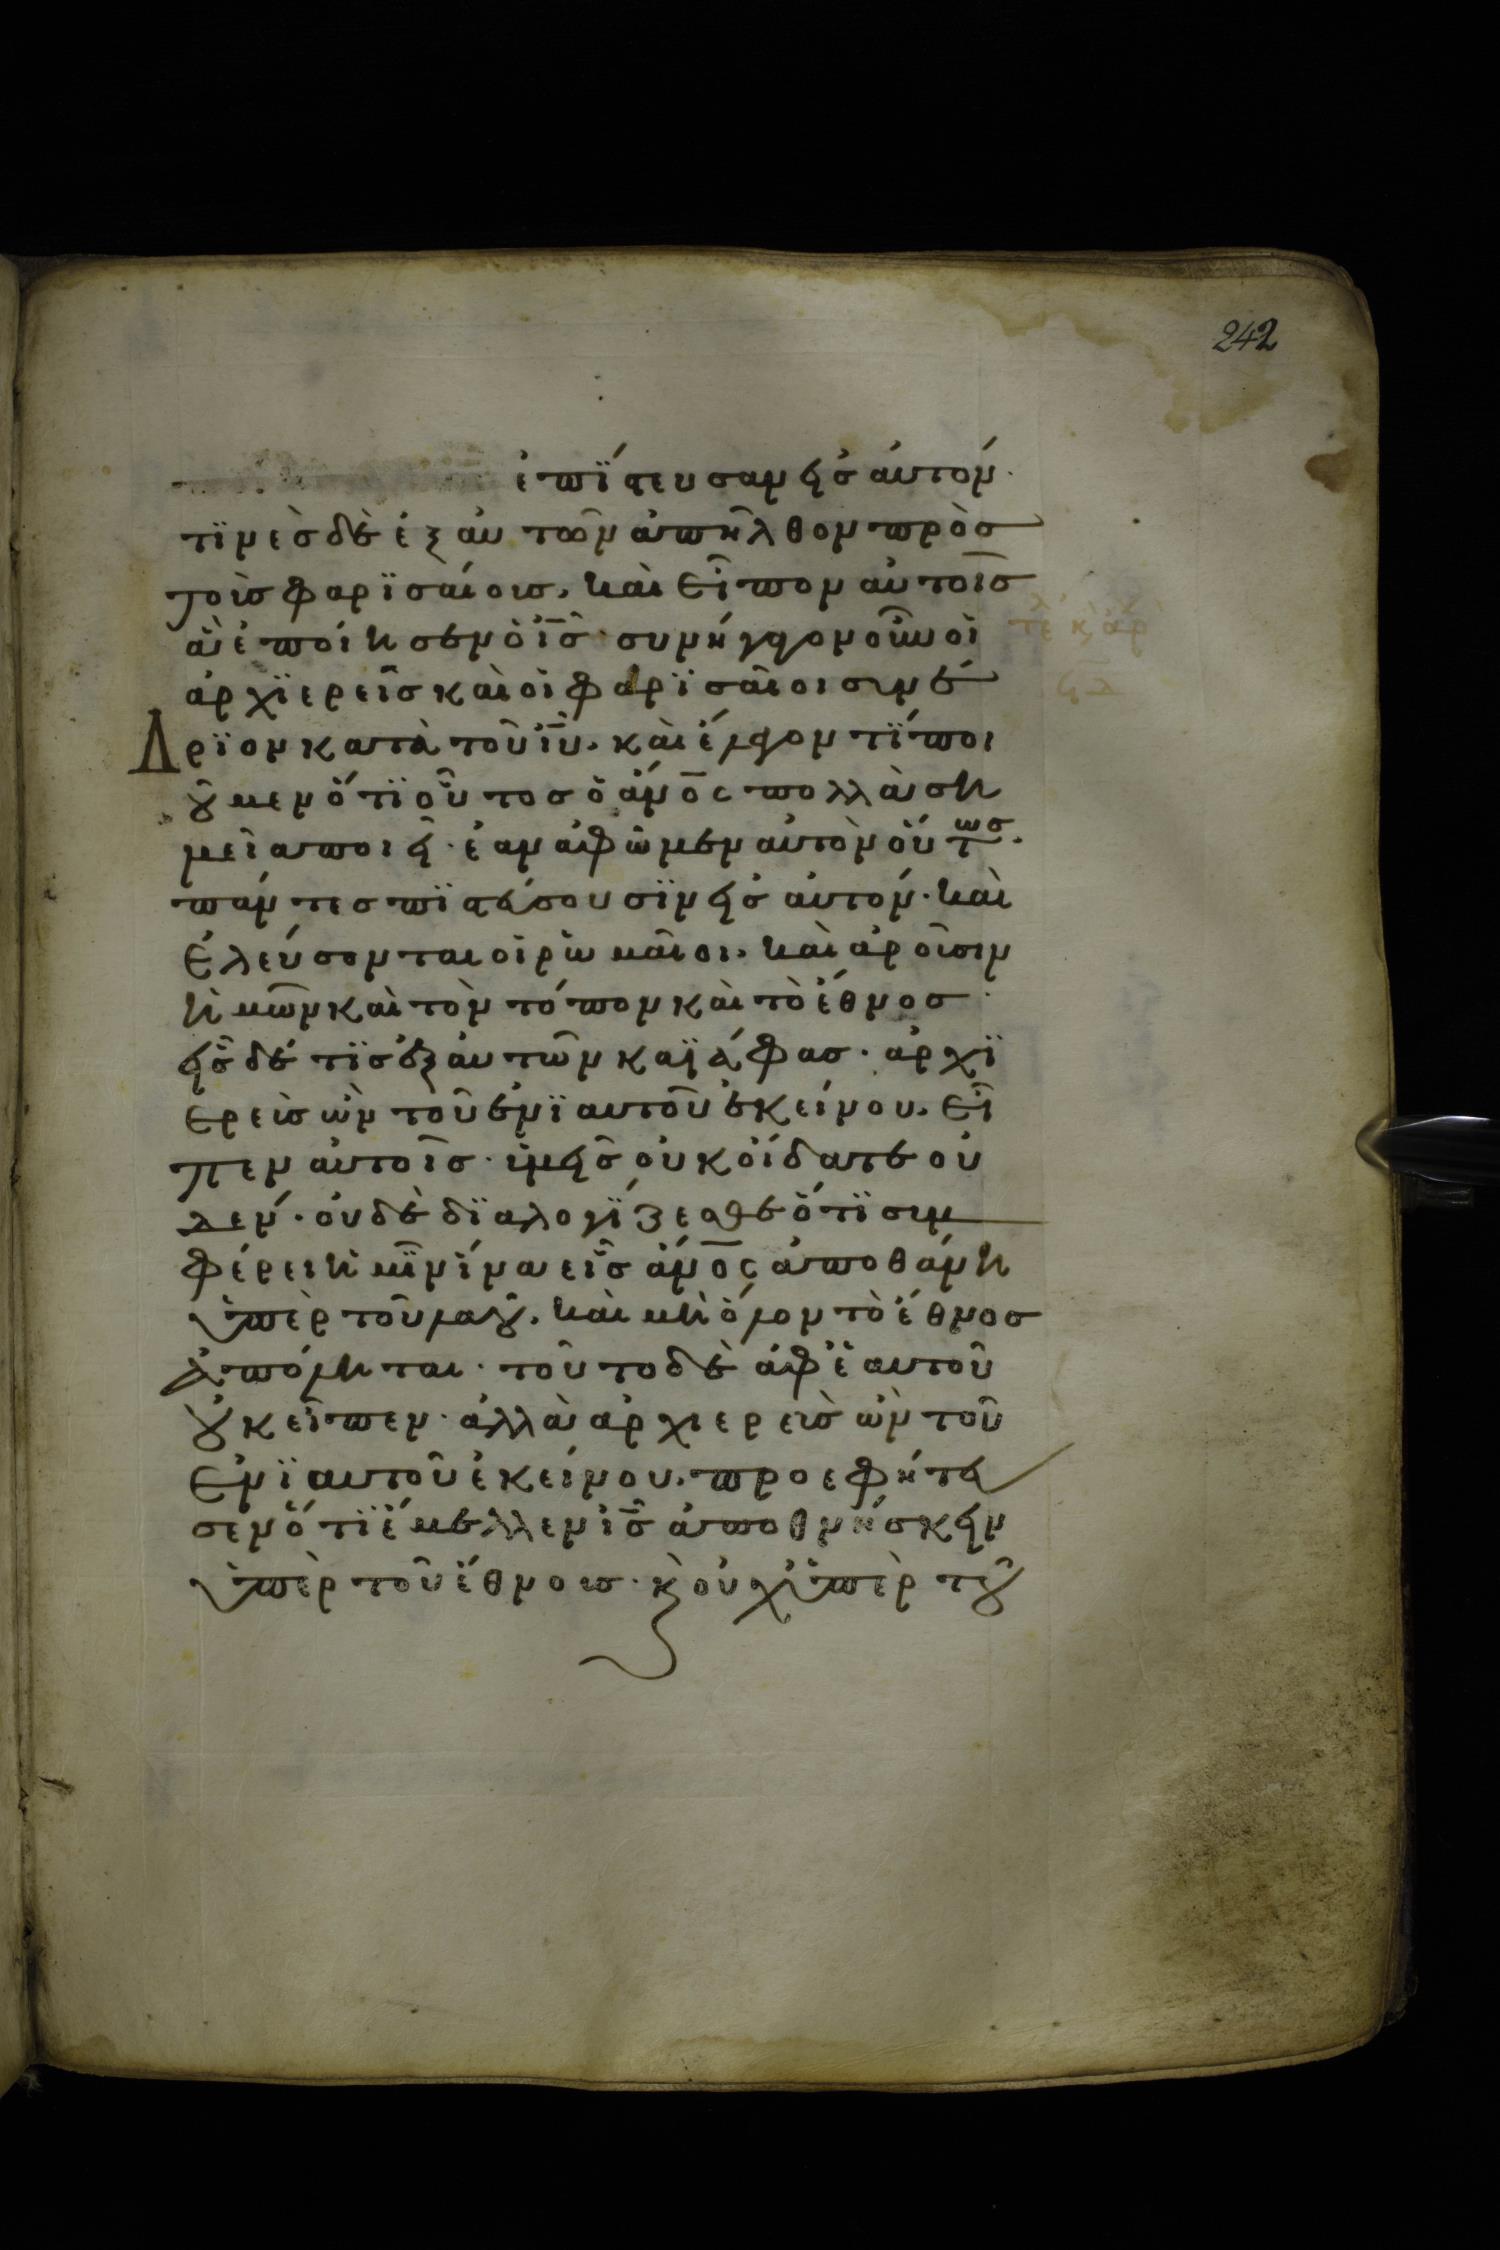 242
ἐπΐστευσαν εἰσ ἀυτόν·
τϊνὲσ δὲ ἐξ αυτῶν ἀπῆλθον πρὸσ
τοὶσ φαρϊσάιοισ. καὶ εἶπον αὐτοῖσ
ἃ ἐποίησεν ὁ ῑσ̄· συνήγαγον οὖν οἱ
ἀρχϊερεῖσ καὶ οἱ φαρϊσαῖοι σινέ
Δρϊον κατὰ τοῦ ῑῡ. καὶ ἔλεγον τΐ ποι
οῦμεν ὅτϊ οὗτοσ ὁ ἄν̄ο̄ς πολλὰ ση
μεῖα ποιεῖ· ἐὰν ἀφῶμεν αὐτὸν οὕτωσ.
πάντεσ πϊστέυσουσϊν εἰσ ἀυτόν· καὶ
ἐλεύσονται οἱ ρὶωμαῖοι. καὶ ἀροῖσιν
ἡμῶν καὶ τὸν τόπον καὶ τὸ ἔθνοσ·
εἷσ δέ τϊσ ἐξ αυτῶν καϊάφασ· ἀρχϊ
ερεὶσ ὢν τοῦ ἐνϊαυτοῦ ἐκείνου. εἶ
πεν ἀυτοῖσ· ὑμεῖσ οὐκ οἴδατε οὐ
δεν· οὐδὲ δϊαλογΐζεσθε ὅτϊ σιμ
φέρει ἡμῖν ἵνα εἷσ ἄν̄ο̄ς ἀποθάνη
ὑπὲρ τοῦ λαοῦ. καὶ μὴ ὅλον τὸ ἔθνοσ
ἀπόληται· τοῦτο δὲ ἀφ ἑαυτοῦ
οὐκ εἶπεν· ἀλλὰ ἀρχιερεὶσ ὢν τοῦ
ἐνϊαυτοῦ ἐκείνου. προεφήτευ
σεν ὅτϊ ἔμελλεν ῑσ̄ ἀποθνήσκειν
ὑπὲρ τοῦ ἔθνουσ· κ̀ οὐχ ὑπὲρ τοῦ